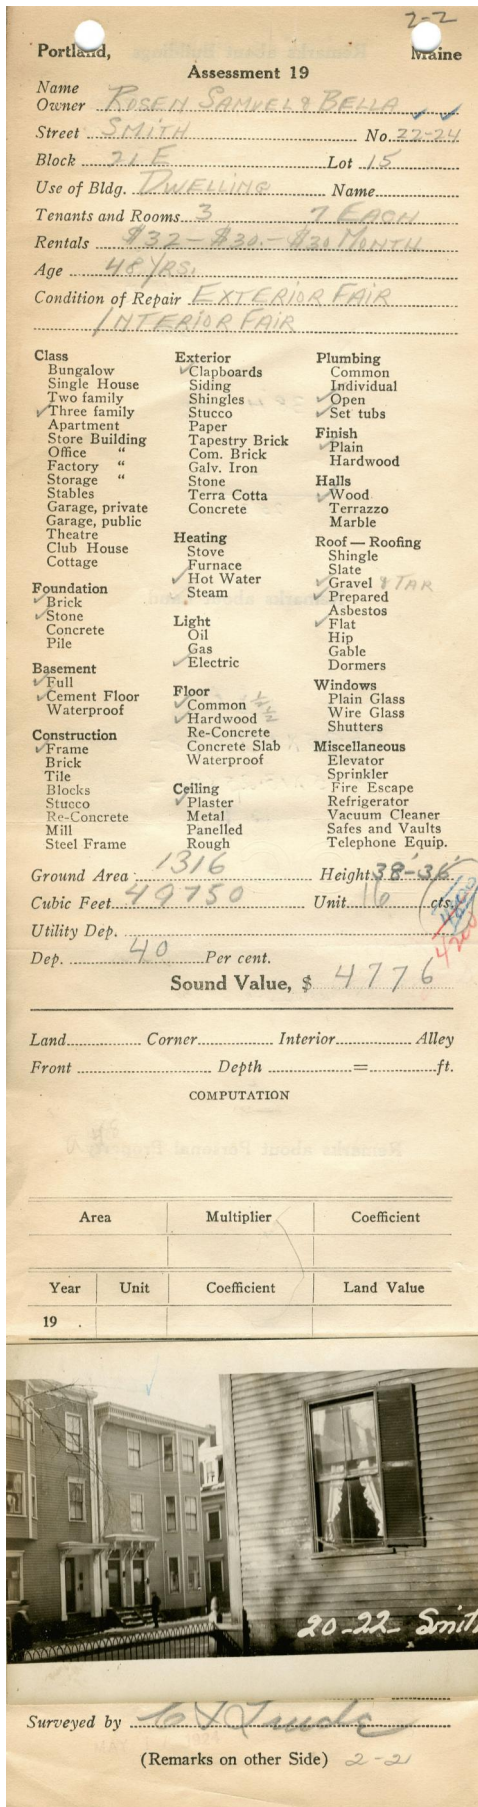 2-2
Portland, Maine
Assessment 19
Name
Owner ROSEN SAMUEL & BELLA
Street SMITH No. 22-24
Block 21 E Lot 15
Use of Bldg. DWELLING Name
Tenants and Rooms 3 7 EACH
Rentals $32-$30.-$30 MONTH
Age 48 YRS.
Condition of Repair EXTERIOR FAIR
INTERIOR FAIR
Class
Bungalow
Single House
Two family
✓Three family
Apartment
Store Building
Office "
Factory "
Storage "
Stables
Garage, private
Garage, public
Theatre
Club House
Cottage
Foundation
✓Brick
✓Stone
Concrete
Pile
Basement
✓Full
✓Cement Floor
Waterproof
Construction
✓Frame
Brick
Tile
Blocks
Stucco
Re-Concrete
Mill
Steel Frame
Exterior
✓Clapboards
Siding
Shingles
Stucco
Paper
Tapestry Brick
Com. Brick
Galv. Iron
Stone
Terra Cotta
Concrete
Heating
Stove
Furnace
✓Hot Water
Steam
Light
Oil
Gas
✓Electric
Floor
✓Common ½
✓Hardwood ½
Re-Concrete
Concrete Slab
Waterproof
Ceiling
✓Plaster
Metal
Panelled
Rough
Plumbing
Common
Individual
✓Open
✓Set tubs
Finish
✓Plain
Hardwood
Halls
✓Wood
Terrazzo
Marble
Roof — Roofing
Shingle
Slate
✓Gravel & TAR
✓Prepared
Asbestos
✓Flat
Hip
Gable
Dormers
Windows
Plain Glass
Wire Glass
Shutters
Miscellaneous
Elevator
Sprinkler
Fire Escape
Refrigerator
Vacuum Cleaner
Safes and Vaults
Telephone Equip.
Ground Area 1316 Height 38'-36'
Cubic Feet 49750 Unit 16 cts.
Utility Dep.
4200
Dep. 40 Per cent.
Sound Value, $ 4776
Land Corner Interior Alley
Front Depth = ft.
COMPUTATION
Area Multiplier Coefficient
Year Unit Coefficient Land Value
19 .
20-22- Smit
Surveyed by
(Remarks on other Side) 2-21